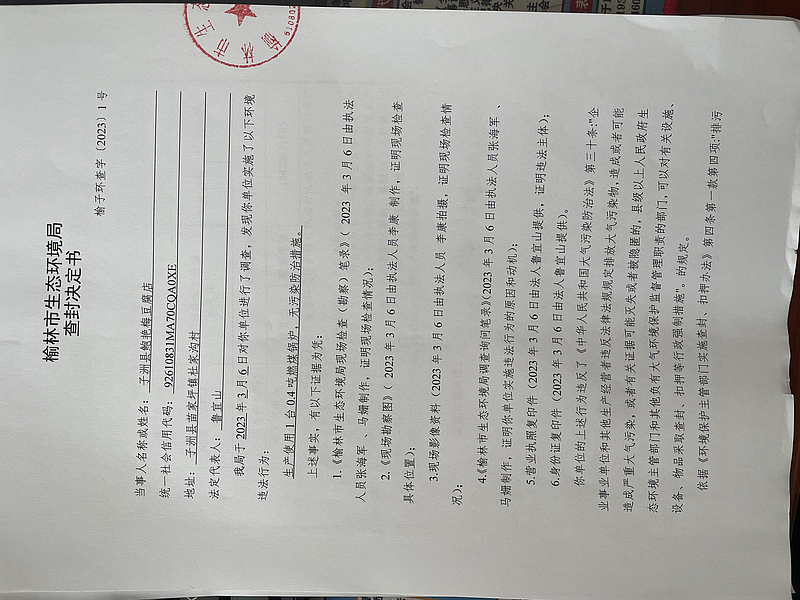 榆林市生态环境局
查封决定书
榆子环查字〔2023〕1 号
当事人名称或姓名： 子洲县鲍艳梅豆腐店
统一社会信用代码： 92610831MA70CQA0XE
地址： 子洲县苗家坪镇杜家沟村
法定代表人： 鲁宜山
我局于 2023 年 3 月 6 日对你单位进行了调查，发现你单位实施了以下环境
违法行为：
生产使用 1 台 0.4 吨燃煤锅炉，无污染防治措施。
上述事实，有以下证据为凭：
1.《榆林市生态环境局现场检查（勘察）笔录》（ 2023 年 3 月 6 日由执法
人员张海军 、马姗制作，证明现场检查情况）；
2.《现场勘察图》（ 2023 年 3 月 6 日由执法人员李康 制作，证明现场检查
具体位置）；
3.现场影像资料（2023 年 3 月 6 日由执法人员 李康拍摄，证明现场检查情
况）；
4.《榆林市生态环境局调查询问笔录》（2023 年 3 月 6 日由执法人员张海军 、
马姗制作，证明你单位实施违法行为的原因和动机）；
5.营业执照复印件（2023 年 3 月 6 日由法人鲁宜山提供，证明违法主体）；
6.身份证复印件（2023 年 3 月 6 日由法人鲁宜山提供）。
你单位的上述行为违反了《中华人民共和国大气污染防治法》第三十条:"企
业事业单位和其他生产经营者违反法律法规规定排放大气污染物，造成或者可能
造成严重大气污染，或者有关证据可能灭失或者被隐匿的，县级以上人民政府生
态环境主管部门和其他负有大气环境保护监督管理职责的部门，可以对有关设施、
设备、物品采取查封、扣押等行政强制措施"。的规定。
依据《环境保护主管部门实施查封、扣押办法》第四条第一款第四项:"排污